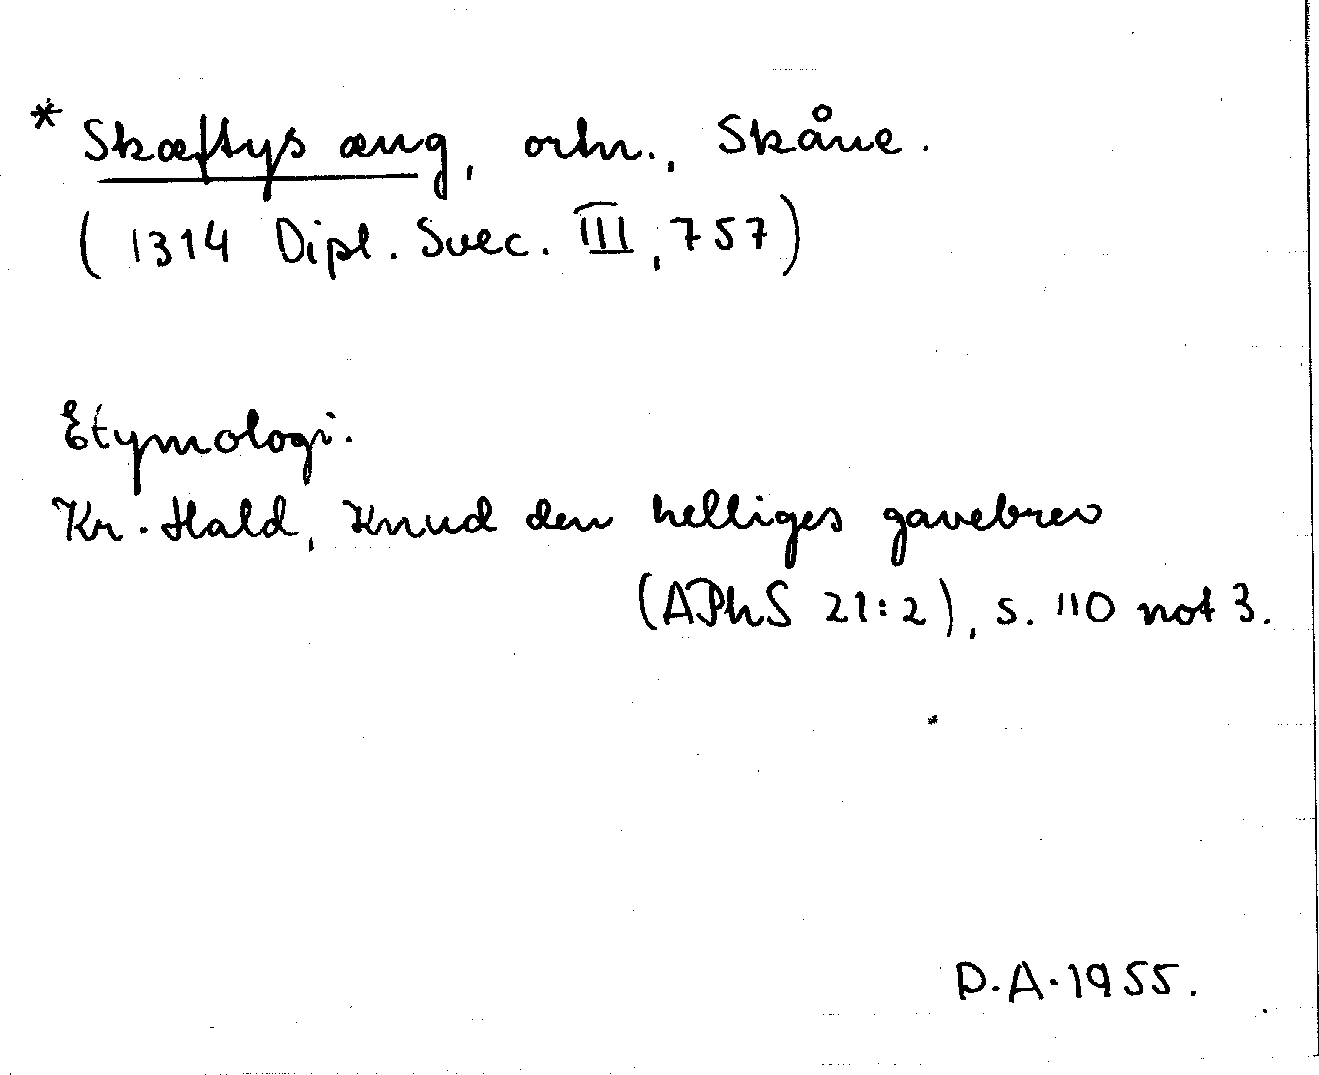 * Skæftys æng, ortn., Skåne.
(1314 Dipl. Svec. III, 757)
Etymologi.
Kr. Hald, Knud den helliges gavebrev
(APhS 21:2), s. 110 not 3.
D.A. 1955.